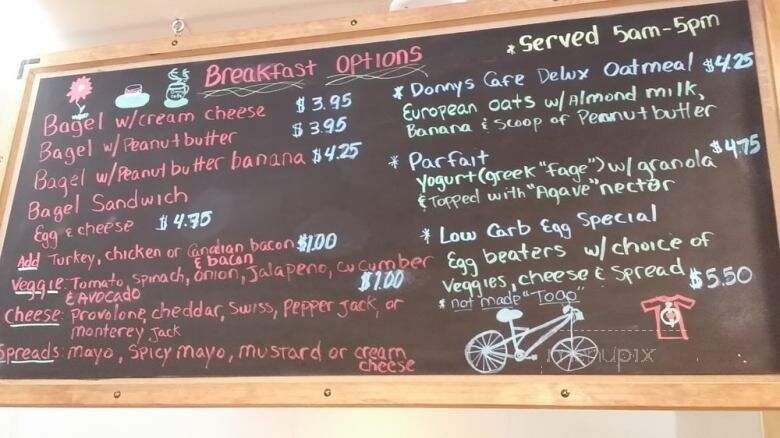 Breakfast Options
* Served 5am-5pm
Bagel w/cream cheese $3.95
Bagel w/Peanut butter $3.95
Bagel w/Peanut butter banana $4.25
Bagel Sandwich
Egg & cheese $4.75
Add Turkey, chicken or Canadian bacon $1.00
& bacon
Veggie: Tomato, spinach, onion, Jalapeno, cucumber
& Avocado $1.00
Cheese: Provolone, cheddar, Swiss, Pepper jack, or
monterey jack
Spreads: mayo, Spicy mayo, mustard or cream
cheese
* Donnys Cafe Delux Oatmeal $4.25
European oats w/Almond milk,
Banana & Scoop of Peanut butter
* Parfait $4.75
Yogurt (greek "Fage") w/ granola
& Topped with "Agave" nector
* Low Carb Egg Special
Egg beaters w/ choice of
Veggies, cheese & Spread $5.50
* not made "Togo"
menupix